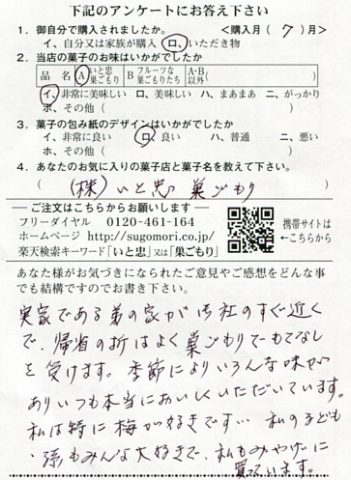 下記のアンケートにお答え下さい
1．御自分で購入されましたか。 ＜購入月（ 7 ）月＞
イ、自分又は家族が購入 ロ、いただき物
2．当店の菓子のお味はいかがでしたか
品 名 A いと忠巣ごもり B フルーツな巣ごもりたち A・B以外（ ）
イ、非常に美味しい ロ、美味しい ハ、まあまあ ニ、がっかり
ホ、その他（ ）
3．菓子の包み紙のデザインはいかがでしたか
イ、非常に良い ロ、良い ハ、普通 ニ、悪い
ホ、その他（ ）
4．あなたのお気に入りの菓子店と菓子名を教えて下さい。
（ (株)いと忠 巣ごもり ）
― ご注文はこちらからお願いします ―
フリーダイヤル 0120-461-164
ホームページ http://sugomori.co.jp/
楽天検索キーワード「いと忠」又は「巣ごもり」
携帯サイトは
←こちらから
あなた様がお気づきになられたご意見やご感想をどんな事
でも結構ですのでお書き下さい。
実家である弟の家が御社のすぐ近く
で、帰省の折はよく巣ごもりでもてなし
を受けます。季節によりいろんな味が
ありいつも本当においしくいただいています。
私は特に梅が好きです… 私の子ども
・孫もみんな大好きで、私もみやげに
買っています。